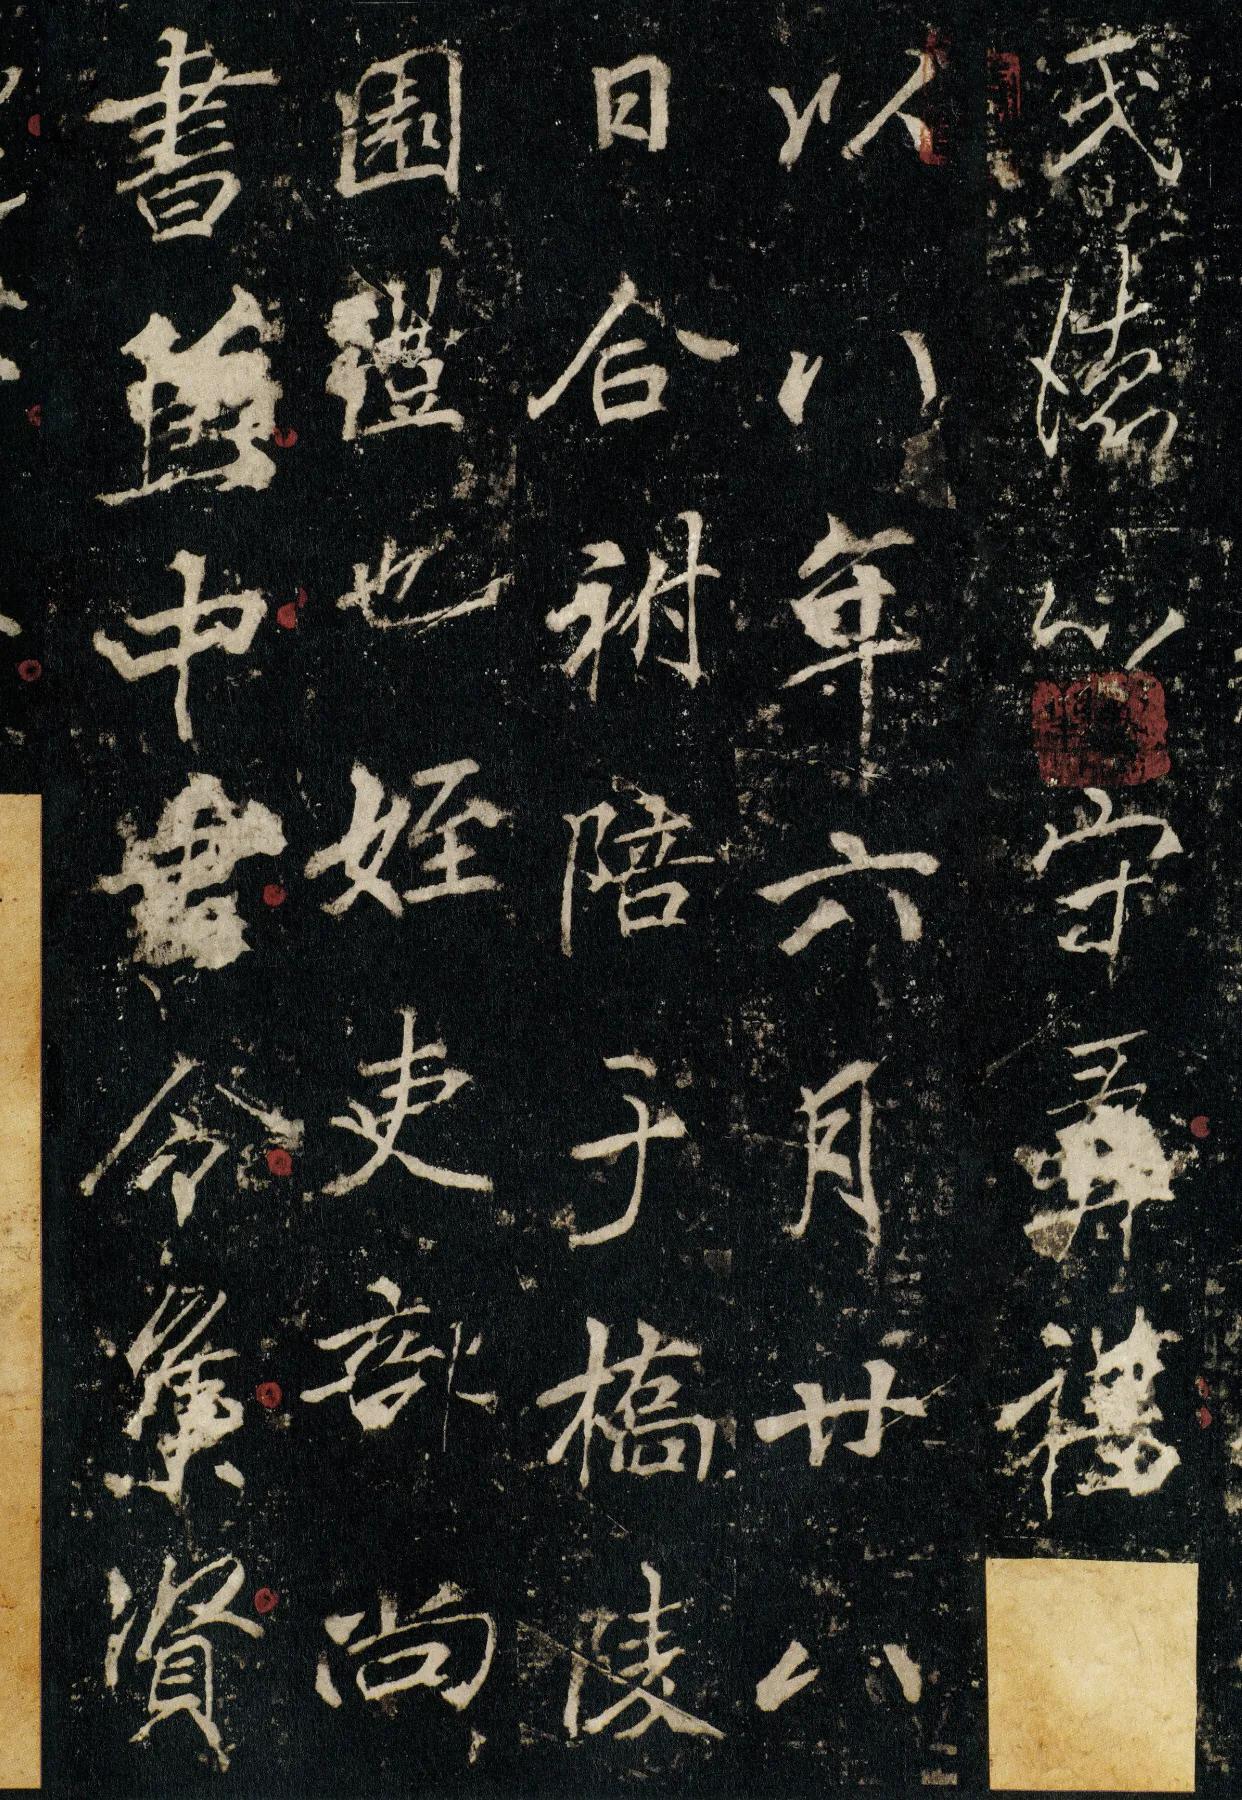 氏德心守彝禮
以八年六月廿八
日合祔陪于橋陵
園禮也姪吏部尚
書兼中書令集賢